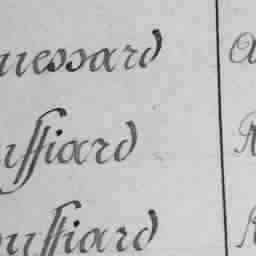 uessard
uffiard
ouffiard